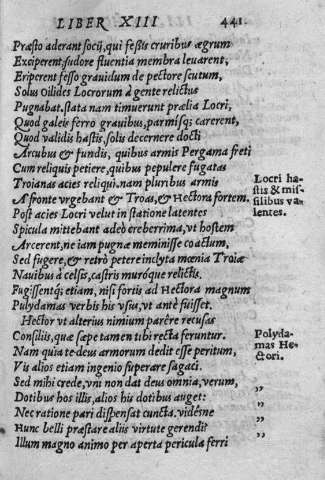 LIBER XIII 441.
Præsto aderant socij, qui fessis cruribus ægrum
Exciperent, sudore fluentia membra leuarent,
Eriperent fesso grauidum de pectore scutum,
Solus Oilides Locrorum à gente relictus
Pugnabat. stata nam timuerunt prælia Locri,
Quod galeis ferro grauibus, parmisq; carerent,
Quod validis hastis, solis decernere docti
Arcubus & fundis, quibus armis Pergama freti
Cum reliquis petiere, quibus pepulere fugatas
Troianas acies reliqui. nam pluribus armis
A fronte vrgebant & Troas, & Hectora fortem.
Post acies Locri velut in statione latentes
Spicula mittebant adeò creberrima, vt hostem
Arcerent, ne iam pugnæ meminisse coactum,
Sed fugere, & retrò petere inclyta mœnia Troiæ
Nauibus à celsis, castris muróque relictis.
Fugissentq; etiam, nisi fortis ad Hectora magnum
Pulydamas verbis his vsus, vt antè fuisset.
Hector vt alterius nimium parêre recusas
Consilijs, quæ sæpe tamen tibi recta feruntur.
Nam quia te deus armorum dedit esse peritum,
Vis alios etiam ingenio superare sagaci.
Sed mihi crede, vni non dat deus omnia, verum,
Dotibus hos illis, alios his dotibus auget:
Nec ratione pari dispensat cuncta. vidésne
Hunc belli præstare alijs virtute gerendi?
Illum magno animo per aperta pericula ferri
Locri ha-
stis & mis-
silibus va-
lentes.
Polyda-
mas He-
ctori.
„
„
„
„
„